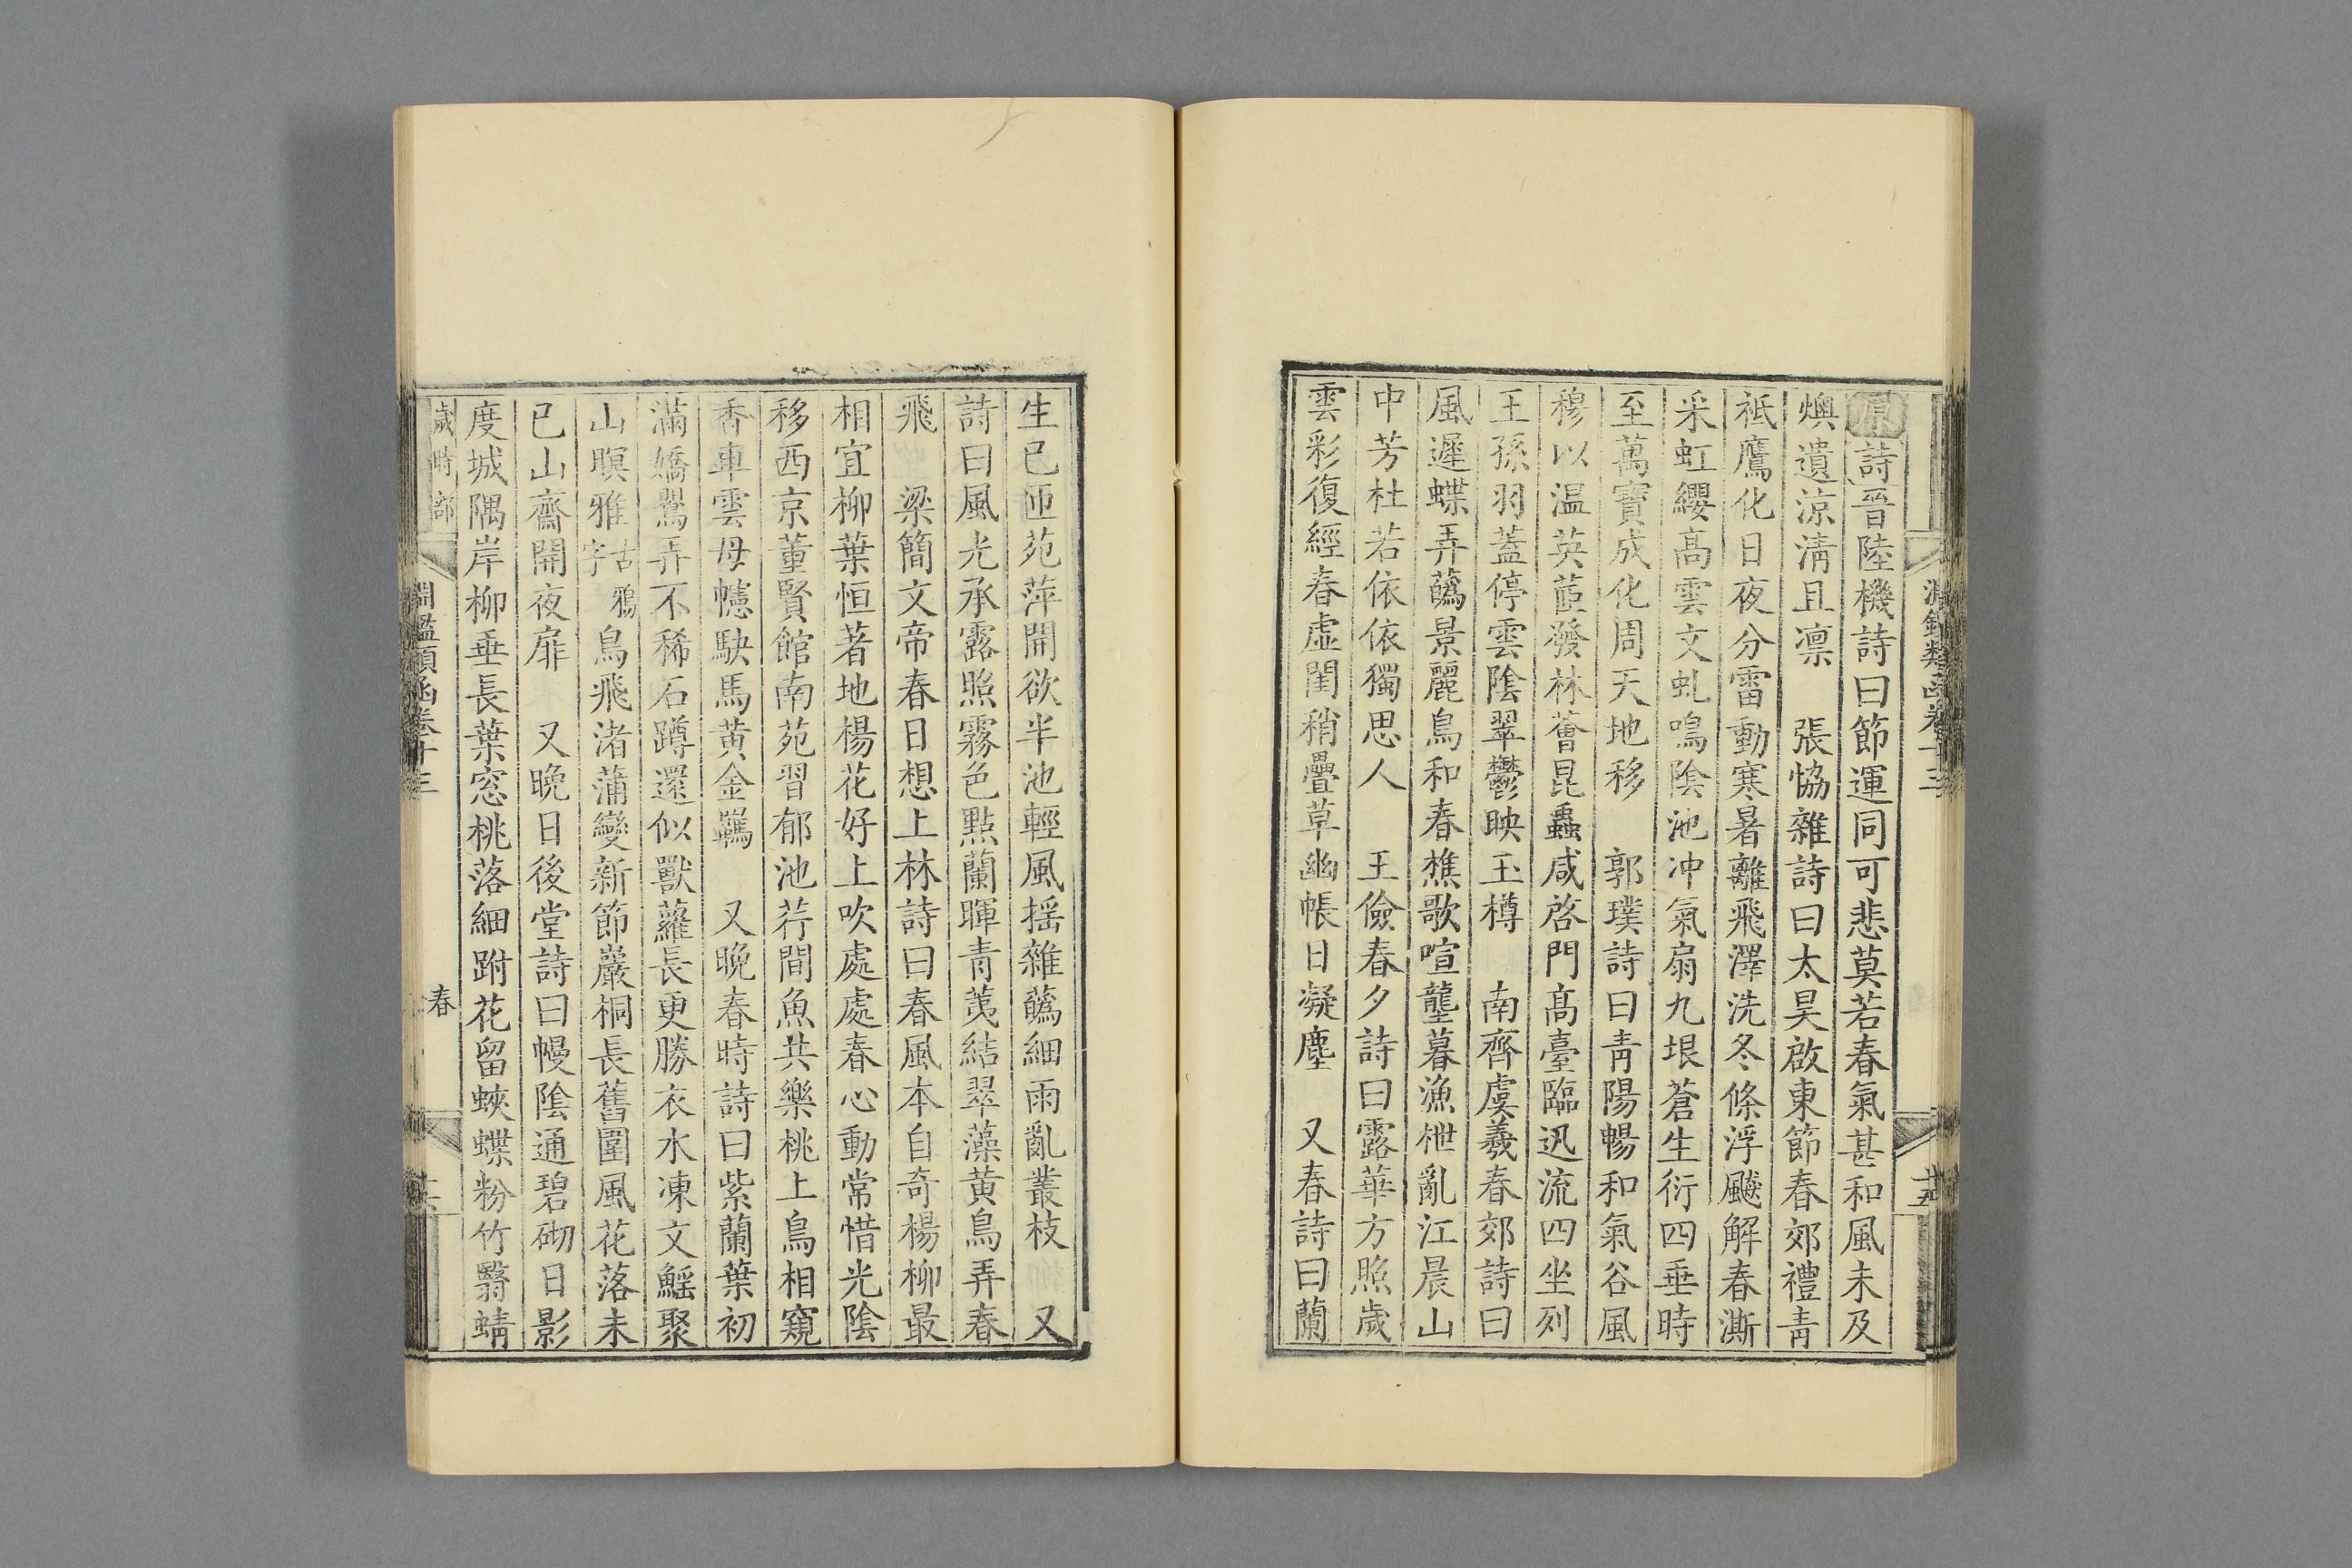 淵鑑類函卷十三
十五
原詩晉陸機詩曰節運同可悲莫若春氣甚和風未及
燠遺涼淸且凛　張協雜詩曰太昊啟東節春郊禮青
祗鷹化日夜分雷動寒暑離飛澤洗冬條浮飈解春澌
采虹纓高雲文虬鳴陰池冲氣扇九垠蒼生衍四垂時
至萬寶成化周天地移　郭璞詩曰青陽暢和氣谷風
穆以温英茝發林薈昆蟲咸啓門高臺臨迅流四坐列
王孫羽蓋停雲陰翠鬱映玉樽　南齊虞羲春郊詩曰
風遲蝶弄蘤景麗鳥和春樵歌喧壟暮漁枻亂江晨山
中芳杜若依依獨思人　王儉春夕詩曰露華方照歲
雲彩復經春虛閨稍疊草幽帳日凝塵　又春詩曰蘭
生已匝苑萍開欲半池輕風揺雜蘤細雨亂叢枝　又
詩曰風光承露照霧色點蘭暉青荑結翠藻黄鳥弄春
飛　梁簡文帝春日想上林詩曰春風本自奇楊柳最
相宜柳葉恒著地楊花好上吹處處春心動常惜光陰
移西京董賢館南苑習郁池荇間魚共樂桃上鳥相窺
香車雲母幰駃馬黄金羈　又晩春時詩曰紫蘭葉初
滿嬌鶯弄不稀石蹲還似獸蘿長更勝衣水凍文鰩聚
山暝雅古鴉字鳥飛渚蒲變新節巖桐長舊圍風花落未
已山齋開夜扉　又晩日後堂詩曰幔陰通碧砌日影
度城隅岸柳垂長葉窓桃落細跗花留蛺蝶粉竹翳蜻
歲時部
淵鑑類函卷十三
春
十六